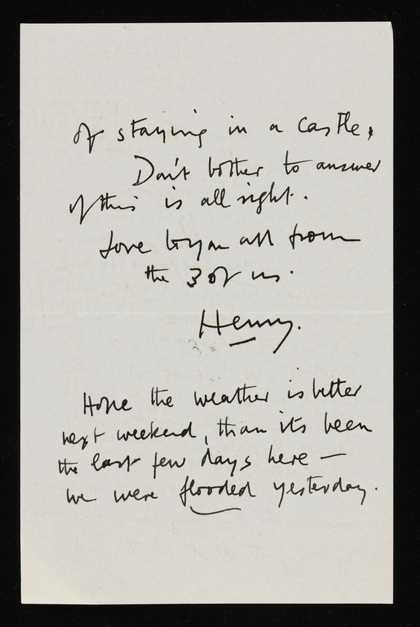 of staying in a castle.
Don't bother to answer
if this is all right.
Love to you all from
the 3 of us.
Henry.
Hope the weather is better
next weekend, than its been
the last few days here —
we were flooded yesterday.